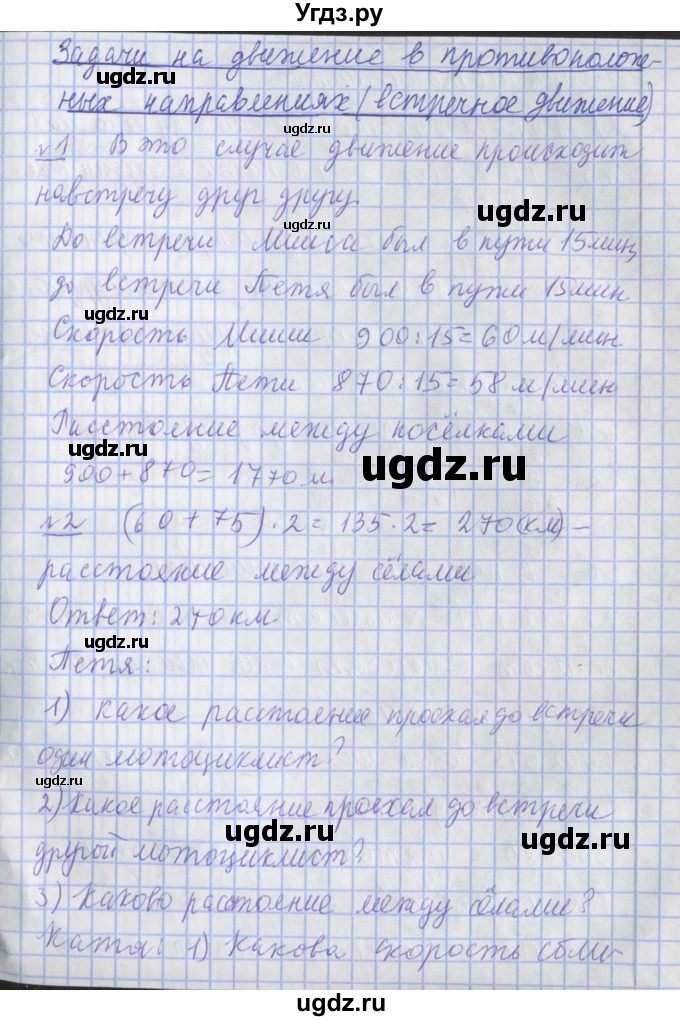 Угдз.ру
Задачи на движение в противополож-
ных направлениях (встречное движение)
№1 В это случае движение происходит
навстречу друг другу.
До встречи Миша был в пути 15 мин,
до встречи Петя был в пути 15 мин.
Скорость Миши 900:15=60 м/мин.
Скорость Пети 870:15=58 м/мин
Расстояние между посёлками
900+870=1770 м.
№2 (60+75)·2=135·2=270(км)–
расстояние между сёлами
Ответ: 270 км.
Петя:
1) какое расстояние проехал до встречи
один мотоциклист?
2) Какое расстояние проехал до встречи
другой мотоциклист?
3) Каково расстояние между сёлами?
Катя: 1) Какова скорость сбли-
ugdz.ru
ugdz.ru
ugdz.ru
ugdz.ru
ugdz.ru
ugdz.ru
ugdz.ru
ugdz.ru
ugdz.ru
ugdz.ru
ugdz.ru
ugdz.ru